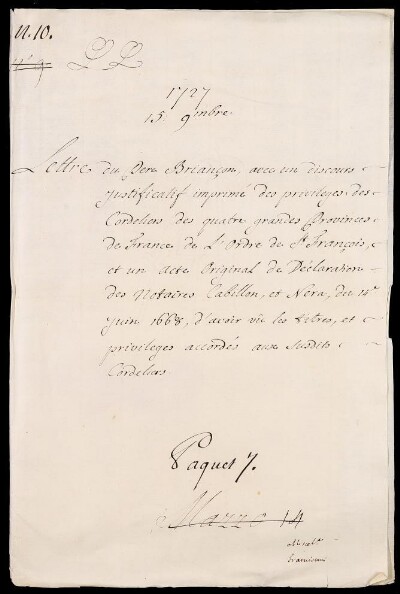 N. 10.
N. 9
P P
1727
15. 9mbre.
Lettre du Pere Briançon, avec un discours
justificatif imprimé des privileges des
Cordeliers des quatre grandes Provinces
de France de L'Ordre de St. François,
et un acte Original de Déclaration
des Notaires Cabillon, et Nera, du 14e
juin 1668, d'avoir vû les titres, et
privileges accordés aux susdits
Cordeliers.
Paquet 7.
Mazzo 14